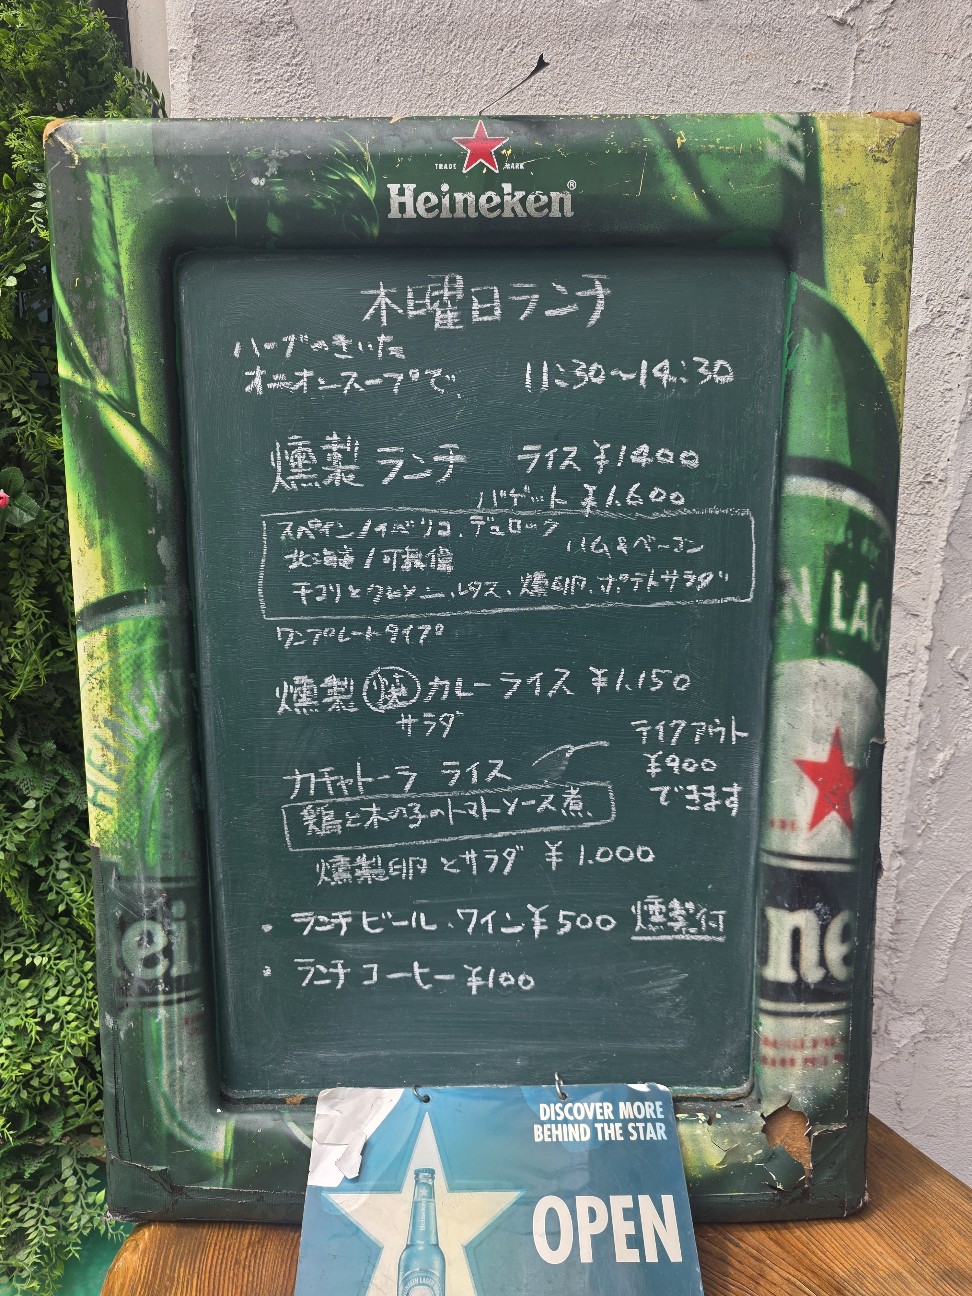 TRADE MARK
Heineken®
木曜日ランチ
ハーブのきいた
オニオンスープで、
11:30〜14:30
燻製 ランチ ライス ¥1400
バゲット ¥1,600
スペイン/イベリコ、デュロック
ハム&ベーコン
北海道/
チコリと レタス、燻卵、ポテトサラダ
ワンプレートタイプ
燻製 カレーライス ¥1,150
サラダ
テイクアウト
¥900
できます
カチャトーラ ライス
鶏と木の子のトマトソース煮
燻製卵とサラダ ¥1.000
・ランチビール、ワイン¥500 燻製付
・ランチコーヒー¥100
DISCOVER MORE
BEHIND THE STAR
OPEN